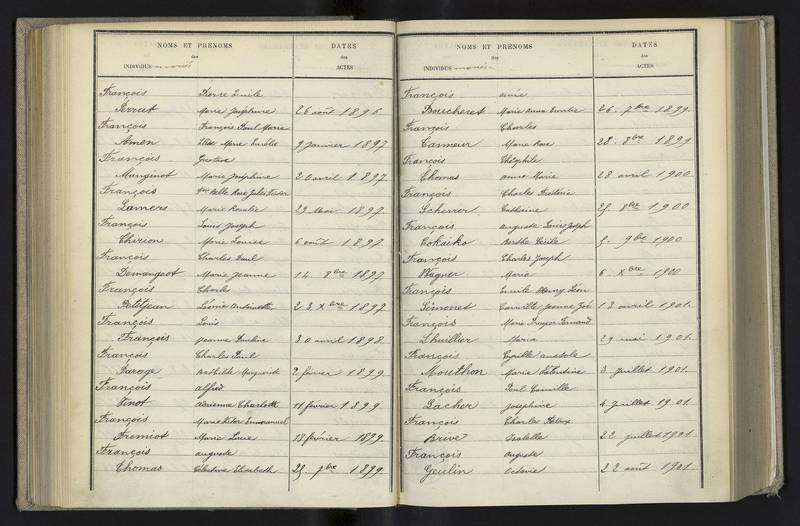 NOMS ET PRÉNOMS DATES
des des
INDIVIDUS mariés ACTES
François Pierre Emile
Perrut Marie Joséphine 26 août 1896
François François Paul Marie
Amon Elise Marie Eurélie 9 janvier 1897
François Gustave
Manginot Marie Joséphine 20 avril 1897
François Jules
Lamers Marie Rosalie 29 Mai 1897
François Louis Joseph
Chirion Marie Louise 6 août 1897
François Charles Paul
Demangeot Marie Jeanne 14. 8bre 1897
François Charles
Petitjean Antoinette 23 Xbre 1897
François Louis
François Jeanne Pauline 30 avril 1898
François Charles Paul
Parage Mathilde Marguerite février 1899
François Alfred
Vinot Adrienne Charlotte 11 février 1899
François Marie Victor Emmanuel
Fremiot Marie Lucie 18 février 1899
François Auguste
Thomas Célestine Elisabeth 29. 7bre 1899
NOMS ET PRÉNOMS DATES
des des
INDIVIDUS mariés ACTES
François Aimée
Boucheret Marie Anna Emilie 26. 7bre 1899
François Charles
Canneur Marie Rose 28. 8bre 1899
François Théophile
Thomas Anne Marie 28 avril 1900
François Charles Frédéric
Scherrer Catherine 8bre 1900
François Auguste Louis Joseph
Cokaiko Berthe Cécile 9bre 1900
François Charles Joseph
Wagner Maria 6 Xbre 1900
François Emile Henry Léon
Simonet Camille Jeanne Zoé 13 avril 1901.
François Marie Fernand
Lhuillier Maria 29 mai 1901.
François Cyrille Anatole
Mouthon Marie Valentine 3 juillet 1901.
François Paul Camille
Lacher Joséphine 4 juillet 1901.
François Charles Félix
Brive Isabelle 22 juillet 1901
François Auguste
Geulin Octavie 22 août 1901